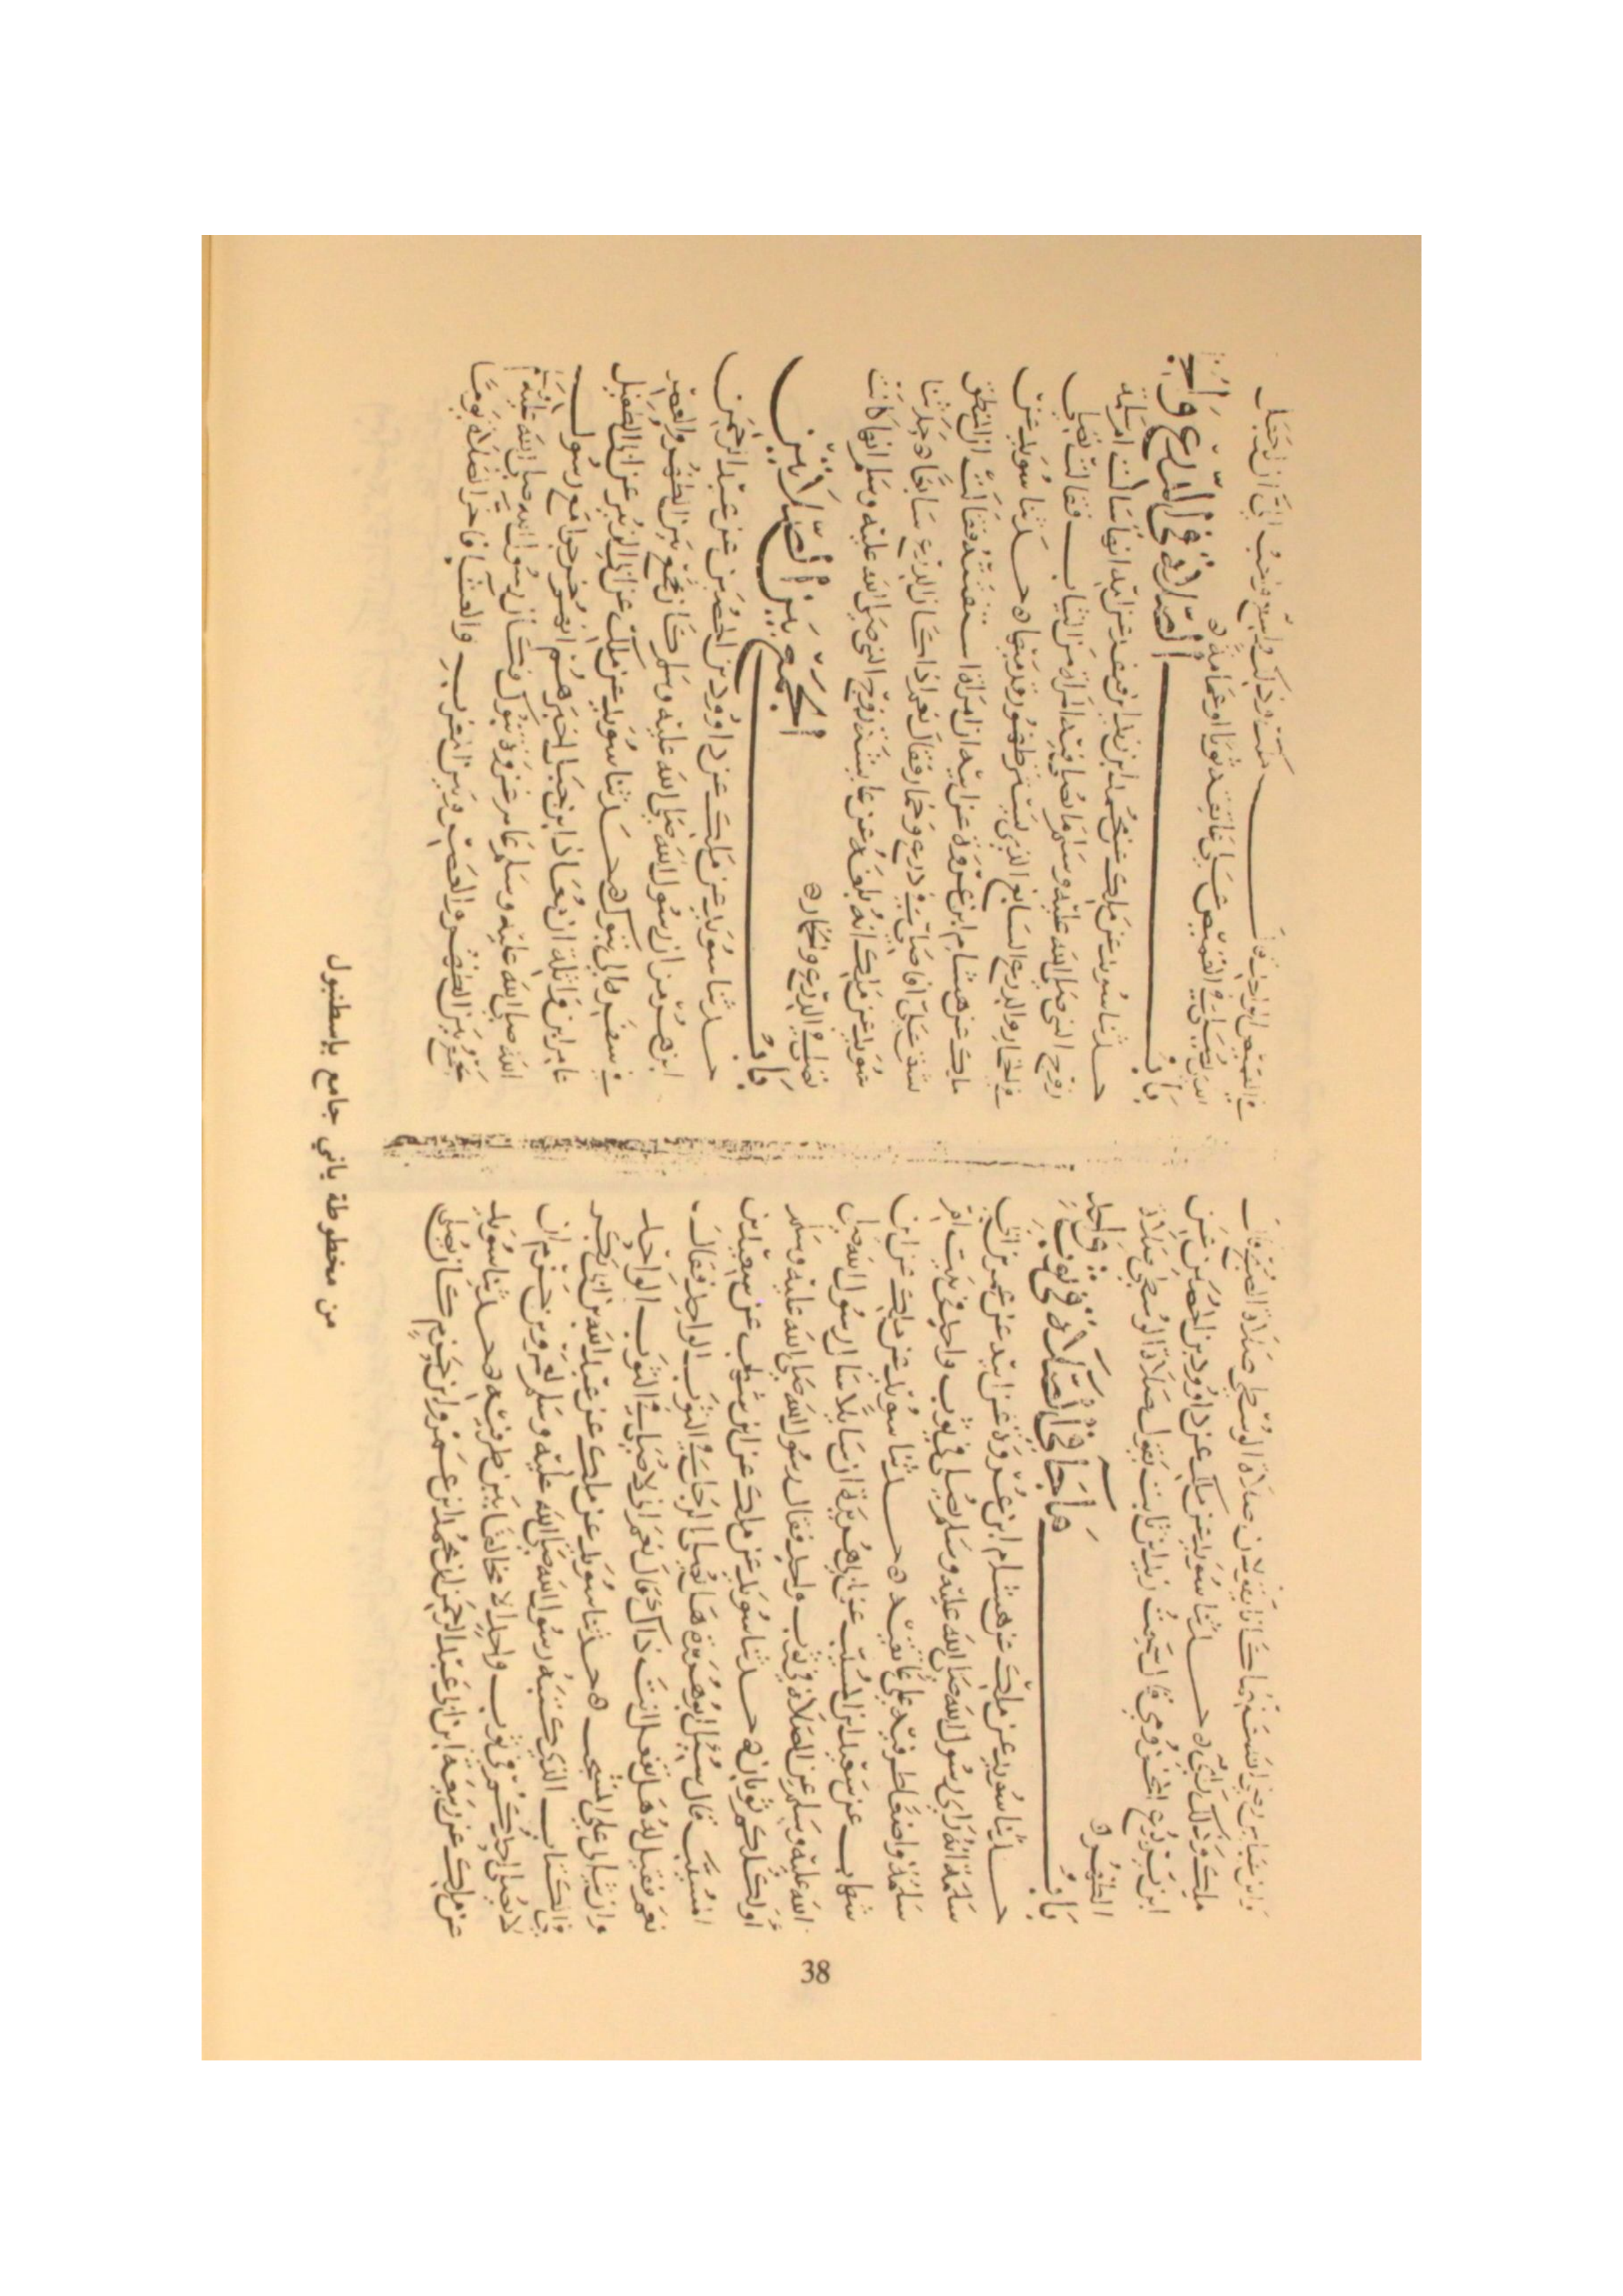 وابن عباس رضي الله عنهما كانا يقولان صلاة الوسطى صلاة الصبح قال
ملك وذلك رأيي ه حدثنا سويد عن ملك عن داوود بن الحصين عن
ابن يربوع المخزومي قال سمعت زيد ابن ثابت يقول صلاة الوسطى صلاة
الظهر ه
باب ما جا في الصلاة في ثوب واحد
حدثنا سويد عن ملك عن هشام ابن عروة عن ابيه عن عمر ابن ابي
سلمة انه راى رسول الله صلى الله عليه وسلم يصلي في ثوب واحد في بيت ام
سلمة واضعا طرفيه على عاتقيه ه حدثنا سويد عن ملك عن ابن
شهاب عن سعيد ابن المسيب عن ابي هريرة ان سايلا سال رسول الله صلى
الله عليه وسلم عن الصلاة في ثوب واحد فقال رسول الله صلى الله عليه وسلم
اولكلكم ثوبان ه حدثنا سويد عن ملك عن ابن شهاب عن سعيد بن
المسيب قال سئل ابو هريرة هل يصلي الرجل في الثوب الواحد فقال
نعم فقيل له هل تفعل انت ذاك قال نعم اني لاصلي في الثوب الواحد
وان ثيابي على المشجب ه حدثنا سويد عن ملك عن عبد الله بن ابي بكر
في الكتاب الذي كتبه رسول الله صلى الله عليه وسلم لعمرو بن حزم ان
لا يصلي احدكم في ثوب واحد الا مخالفا بين طرفيه ه حدثنا سويد
عن ملك عن ربيعة ابن ابي عبد الرحمن ان محمد ابن عمرو ابن حزم كان يصلي
في القميص الواحد قال ملك وذلك واسع واحب الي ان يجعل
الذي يصلي في القميص على عاتقه ثوبا او عمامة ه
باب الصلاة في الدرع و
حدثنا سويد عن ملك عن محمد ابن زيد ابن قنفذ عن امه انها سالت ام سلمة
زوج النبي صلى الله عليه وسلم ما تصلي فيه المراة من الثياب فقالت تصلي
في الخمار والدرع السابغ الذي يستر ظهور قدميها ه حدثنا سويد عن
ملك عن هشام ابن عروة عن ابيه ان امراة استفتته فقالت ان المنطق
يشق علي افاصلي في درع وخمار فقال نعم اذا كان الدرع سابغا ه حدثنا
سويد عن ملك انه بلغه عن عايشة زوج النبي صلى الله عليه وسلم انها كانت
تصلي في الدرع والخمار ه
باب الجمع بين الصلاتين
حدثنا سويد عن ملك عن داوود بن الحصين عن عبد الرحمن
ابن هرمز ان رسول الله صلى الله عليه وسلم كان يجمع بين الظهر والعصر
في سفره الى تبوك ه حدثنا سويد عن ملك عن ابي الزبير عن ابي الطفيل
عامر ابن واثلة ان معاذ ابن جبل اخبرهم انهم خرجوا مع رسول
الله صلى الله عليه وسلم عام غزوة تبوك فكان رسول الله صلى الله عليه
يجمع بين الظهر والعصر وبين المغرب والعشا فاخر الصلاة يوما
من مخطوطة ياني جامع بإسطنبول
38